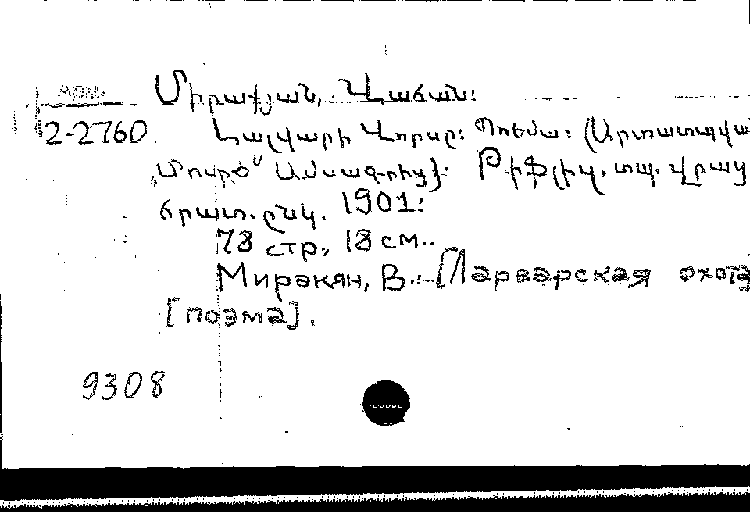 АРМ.
Միրաքյան, Վահան:
2-2760 Լալվարի Վորսը: Պոեմա: (Արտատպված
„Մուրճ" Ամսագրից): Թիֆլիս, տպ. Վրաց
հրատ. ընկ. 1901:
78 стр., 18 см..
Миракян, В.— [Ларварская охота
[поэма].
9308